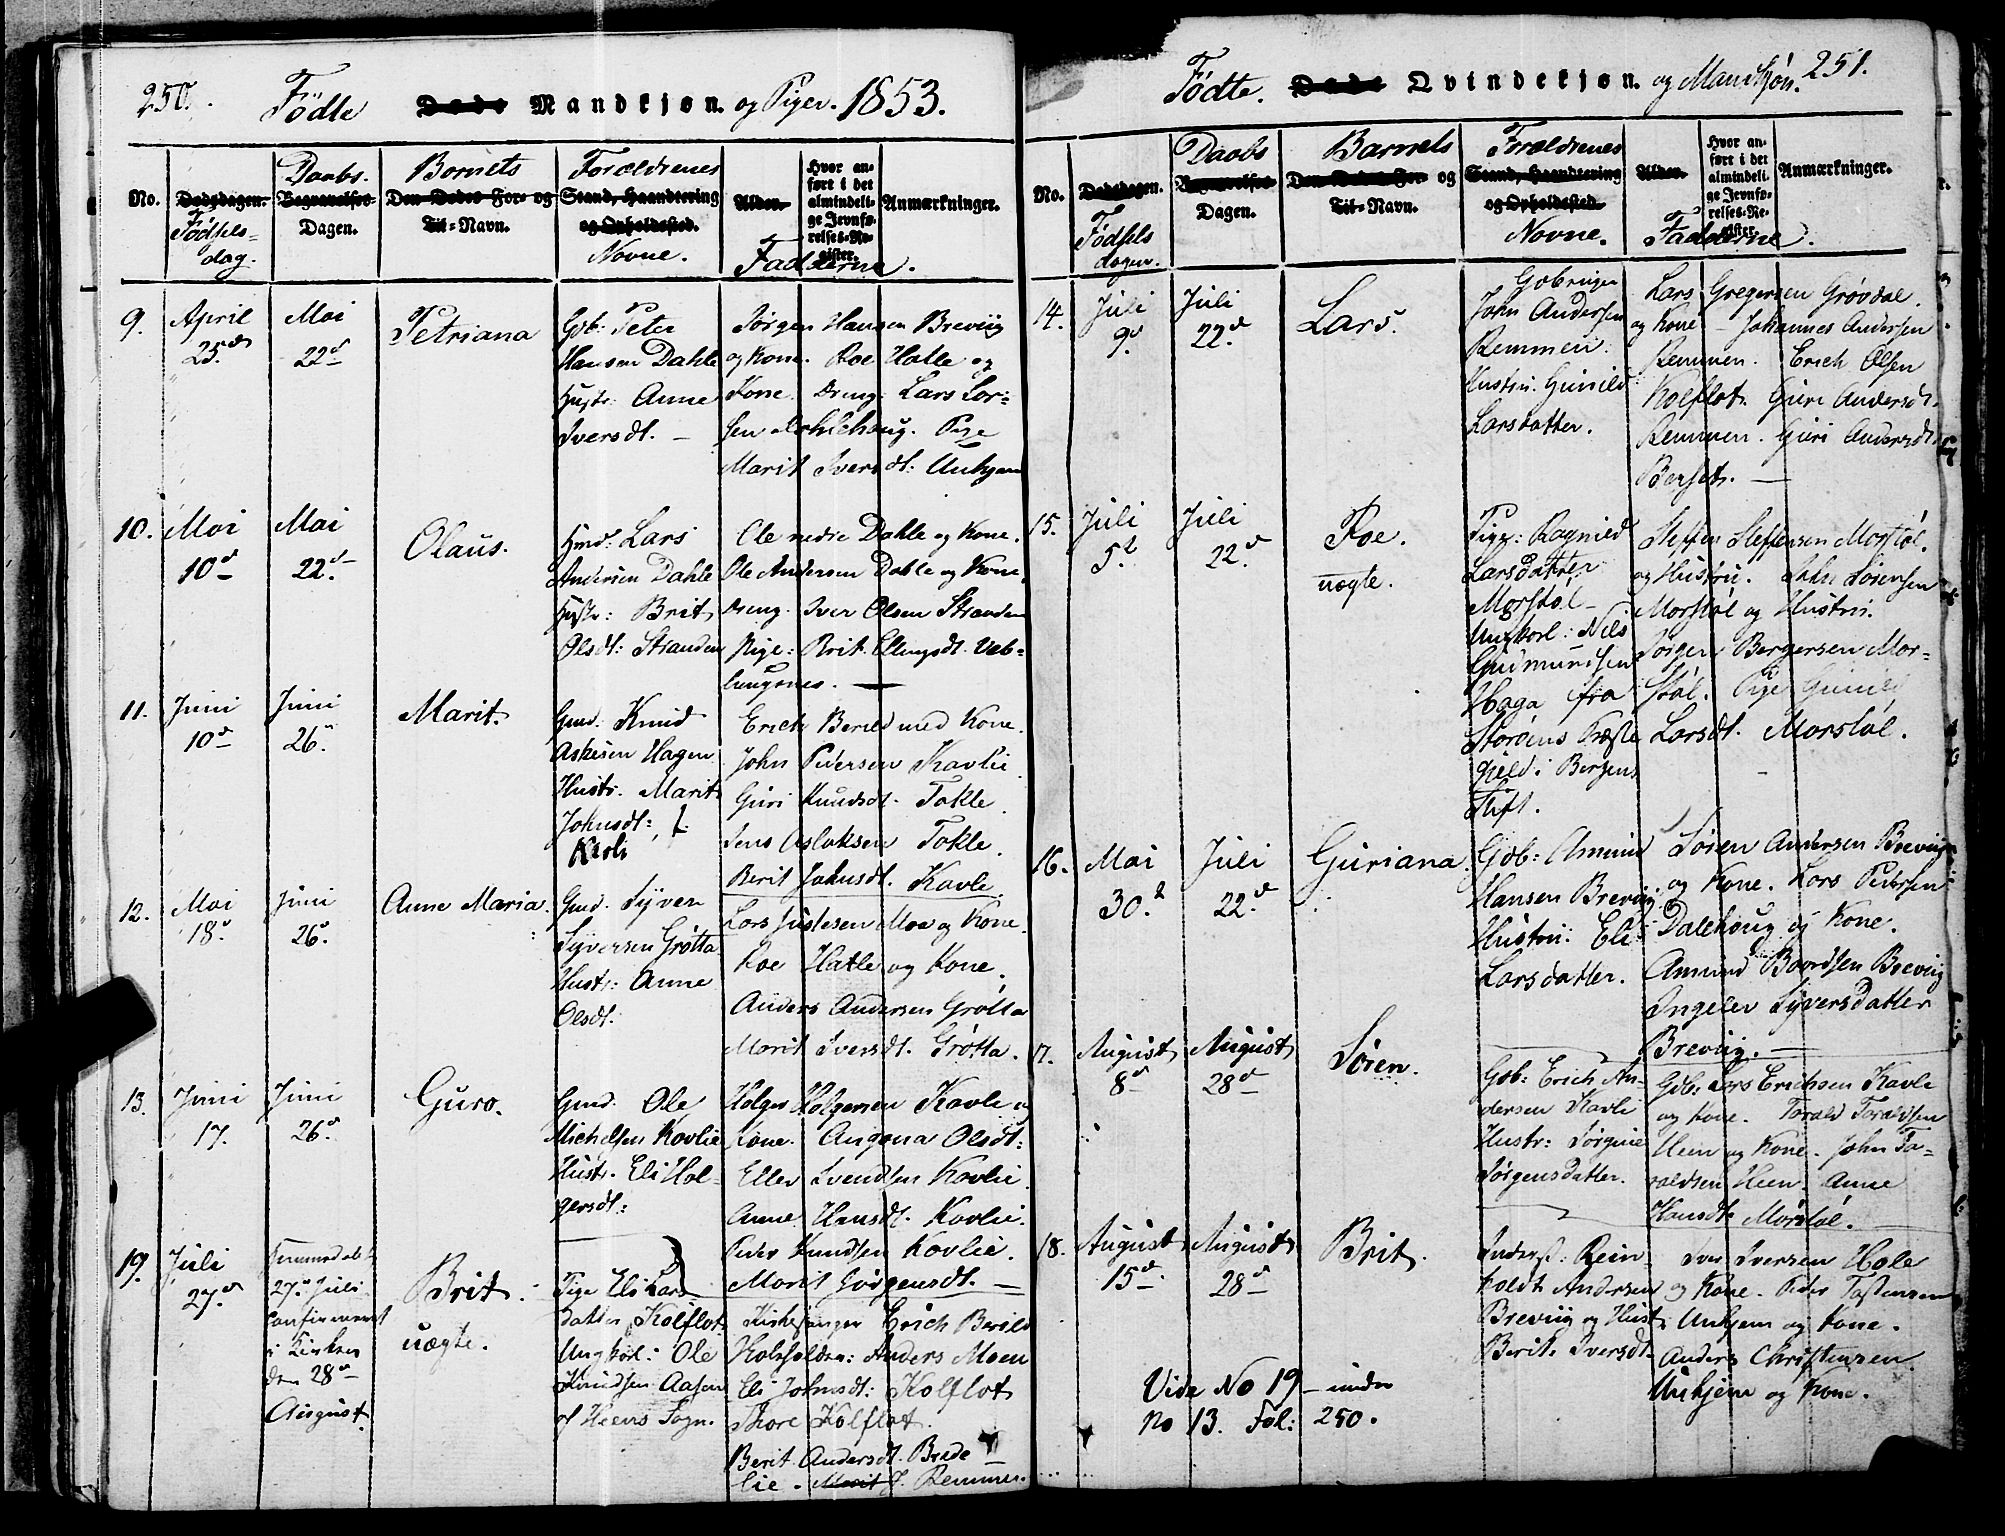 250.
Födte Döde Mandkjøn. og Piger. 1853.
No.
Dødsdagen.
Födsels-
dag.
Daabs.
Begravelses-
Dagen.
Barnets
Den Dødes For- og
Til-Navn.
Forældrenes
Stand, Haandtering
og Opholdssted.
Navne.
Alder.
Hvor an-
ført i det
almindeli-
ge Jevnfø-
relses-Re-
gister.
Fadderne.
Anmærkninger.
9.
April
25d
Mai
22d
Petriana
Gb: Peter
Hansen Dahle
Hustr: Anne
Iversdt. –
Jørgen Hansen Breviig
og Kone. Roe Hatle og
Kone. Dreng: Lars Lar-
sen Dahlehoug. Pige
Marit Iversdt: Unhjem
10.
Mai
10d
Mai
22d
Olaus.
Hmd: Lars
Andersen Dahle
Hustr: Brit
Olsdt: Stranden
Ole nedre Dahle og Kone.
Ole Andersen Dahle og Kone
Dreng. Iver Olsen Stranden
Pige: Brit Ellingsdt. Veb-
lungsnes. —
11.
Juni
10d
Juni
26d
Marit.
Gmd: Knud
Hagen
Hustr. Marit
Johnsdt:
Kavli
Erich Berild med Kone.
John Pedersen Kavlie
Guri Knudsdt. Tokle
Jens Aslaksen Tokle.
Berit Johnsdt. Kavlie
12.
Mai
18d
Juni
26d
Anne Maria.
Gmd. Syver
Syversen Grötta
Hustr: Anne
Olsdt:
Lars Justesen Moe og Kone.
Roe Hatle og Kone.
Anders Andersen Grötta
Marit Iversdt. Grötta.
13.
Juni
17.
Juni
26d
Guro.
Gmd. Ole
Michelsen Kavlie
Hust. Eli Hol-
gersdt:
Holger Holgersen Kavlie og
Kone. Olsdt:
Eller Svendsen Kavlie.
Anne Hansdt. Kavlie.
Peder Knudsen Kavlie.
Marit Jørgensdt. —
19.
Juli
27d
27d Juli
i Kirken
den 28d
August
Brit.
uægte.
Pige Eli Lars-
datter Kolflot.
Ungkarl: Ole
Knudsen Aasen
af Heens Sogn.
Kirkesanger Erich Berild
Anders Moen
Eli Johnsdt: Kolflot
Thore Kolflot.
Berit Andersdt. Brede-
lie. Marit J. Remmen
251.
Födte. Döde Qvindekjøn. og Mandkjøn.
No.
Dødsdagen.
Födsels
dagen.
Daabs
Begravelses
Dagen.
Barnets
Den Dødes For- og
Til-Navn.
Forældrenes
Stand, Haandtering
og Opholdssted.
Navne.
Alder.
Hvor an-
ført i det
almindeli-
ge Jevnfø-
relses-Re-
gister.
Fadderne.
Anmærkninger.
14.
Juli
9d
Juli
22d
Lars.
Gbbruger
John Andersen
Remmen.
Hustru. Gunild
Larsdatter.
Lars Gregersen Grøvdal.
og Kone – Johannes Andersen
Remmen. Erich Olsen
Kolflot. Guri Andersdt.
Remmen. Guri Andersdt
Berset. —
15.
Juli
5d
Juli
22d
Roe.
uægte.
Pige: Ragnild
Larsdatter
Morstøl
Ungkarl: Nils
Gudmundsen
Haga fra
Størens Præste
gjeld i Bergens
Stift.
Steffen Steffensen Morstøl.
og Hustru. John Sörensen
Morstøl og Hustru.
Jørgen Bergersen Mor-
støl. Pige Gunild
Larsdt. Morstøl.
16.
Mai
30d
Juli
22d
Guriana
Gdb: Amund
Hansen Breviig
Hustru: Eli
Larsdatter.
Sören Andersen Breviig
og Kone. Lars Pedersen
Dalehoug og Kone.
Amund Baardsen Breviig
Ingeler Syversdatter
Breviig. —
17.
August
8d
August
28d
Sören.
Gdb: Erich An-
dersen Kavli
Hustr: Jørgine
Jørgensdatter.
Gdb: Lars Erichsen Kavlie
og Kone. Torald Toraldsen
Heen og Kone. John To-
raldsen Heen. Anne
Hansdt. Morstøl.
18.
August
15d
August
28d
Brit.
Inderst: Rein-
holdt Andersen
Breviig og Hustr.
Berit Iversdt.
Iver Iversen Hole
og Kone. Peder Tostensen
Unhjem og Kone.
Anders Christensen
Unhjem og Kone.
Vide No 19 – under
No 13. Fol: 250.